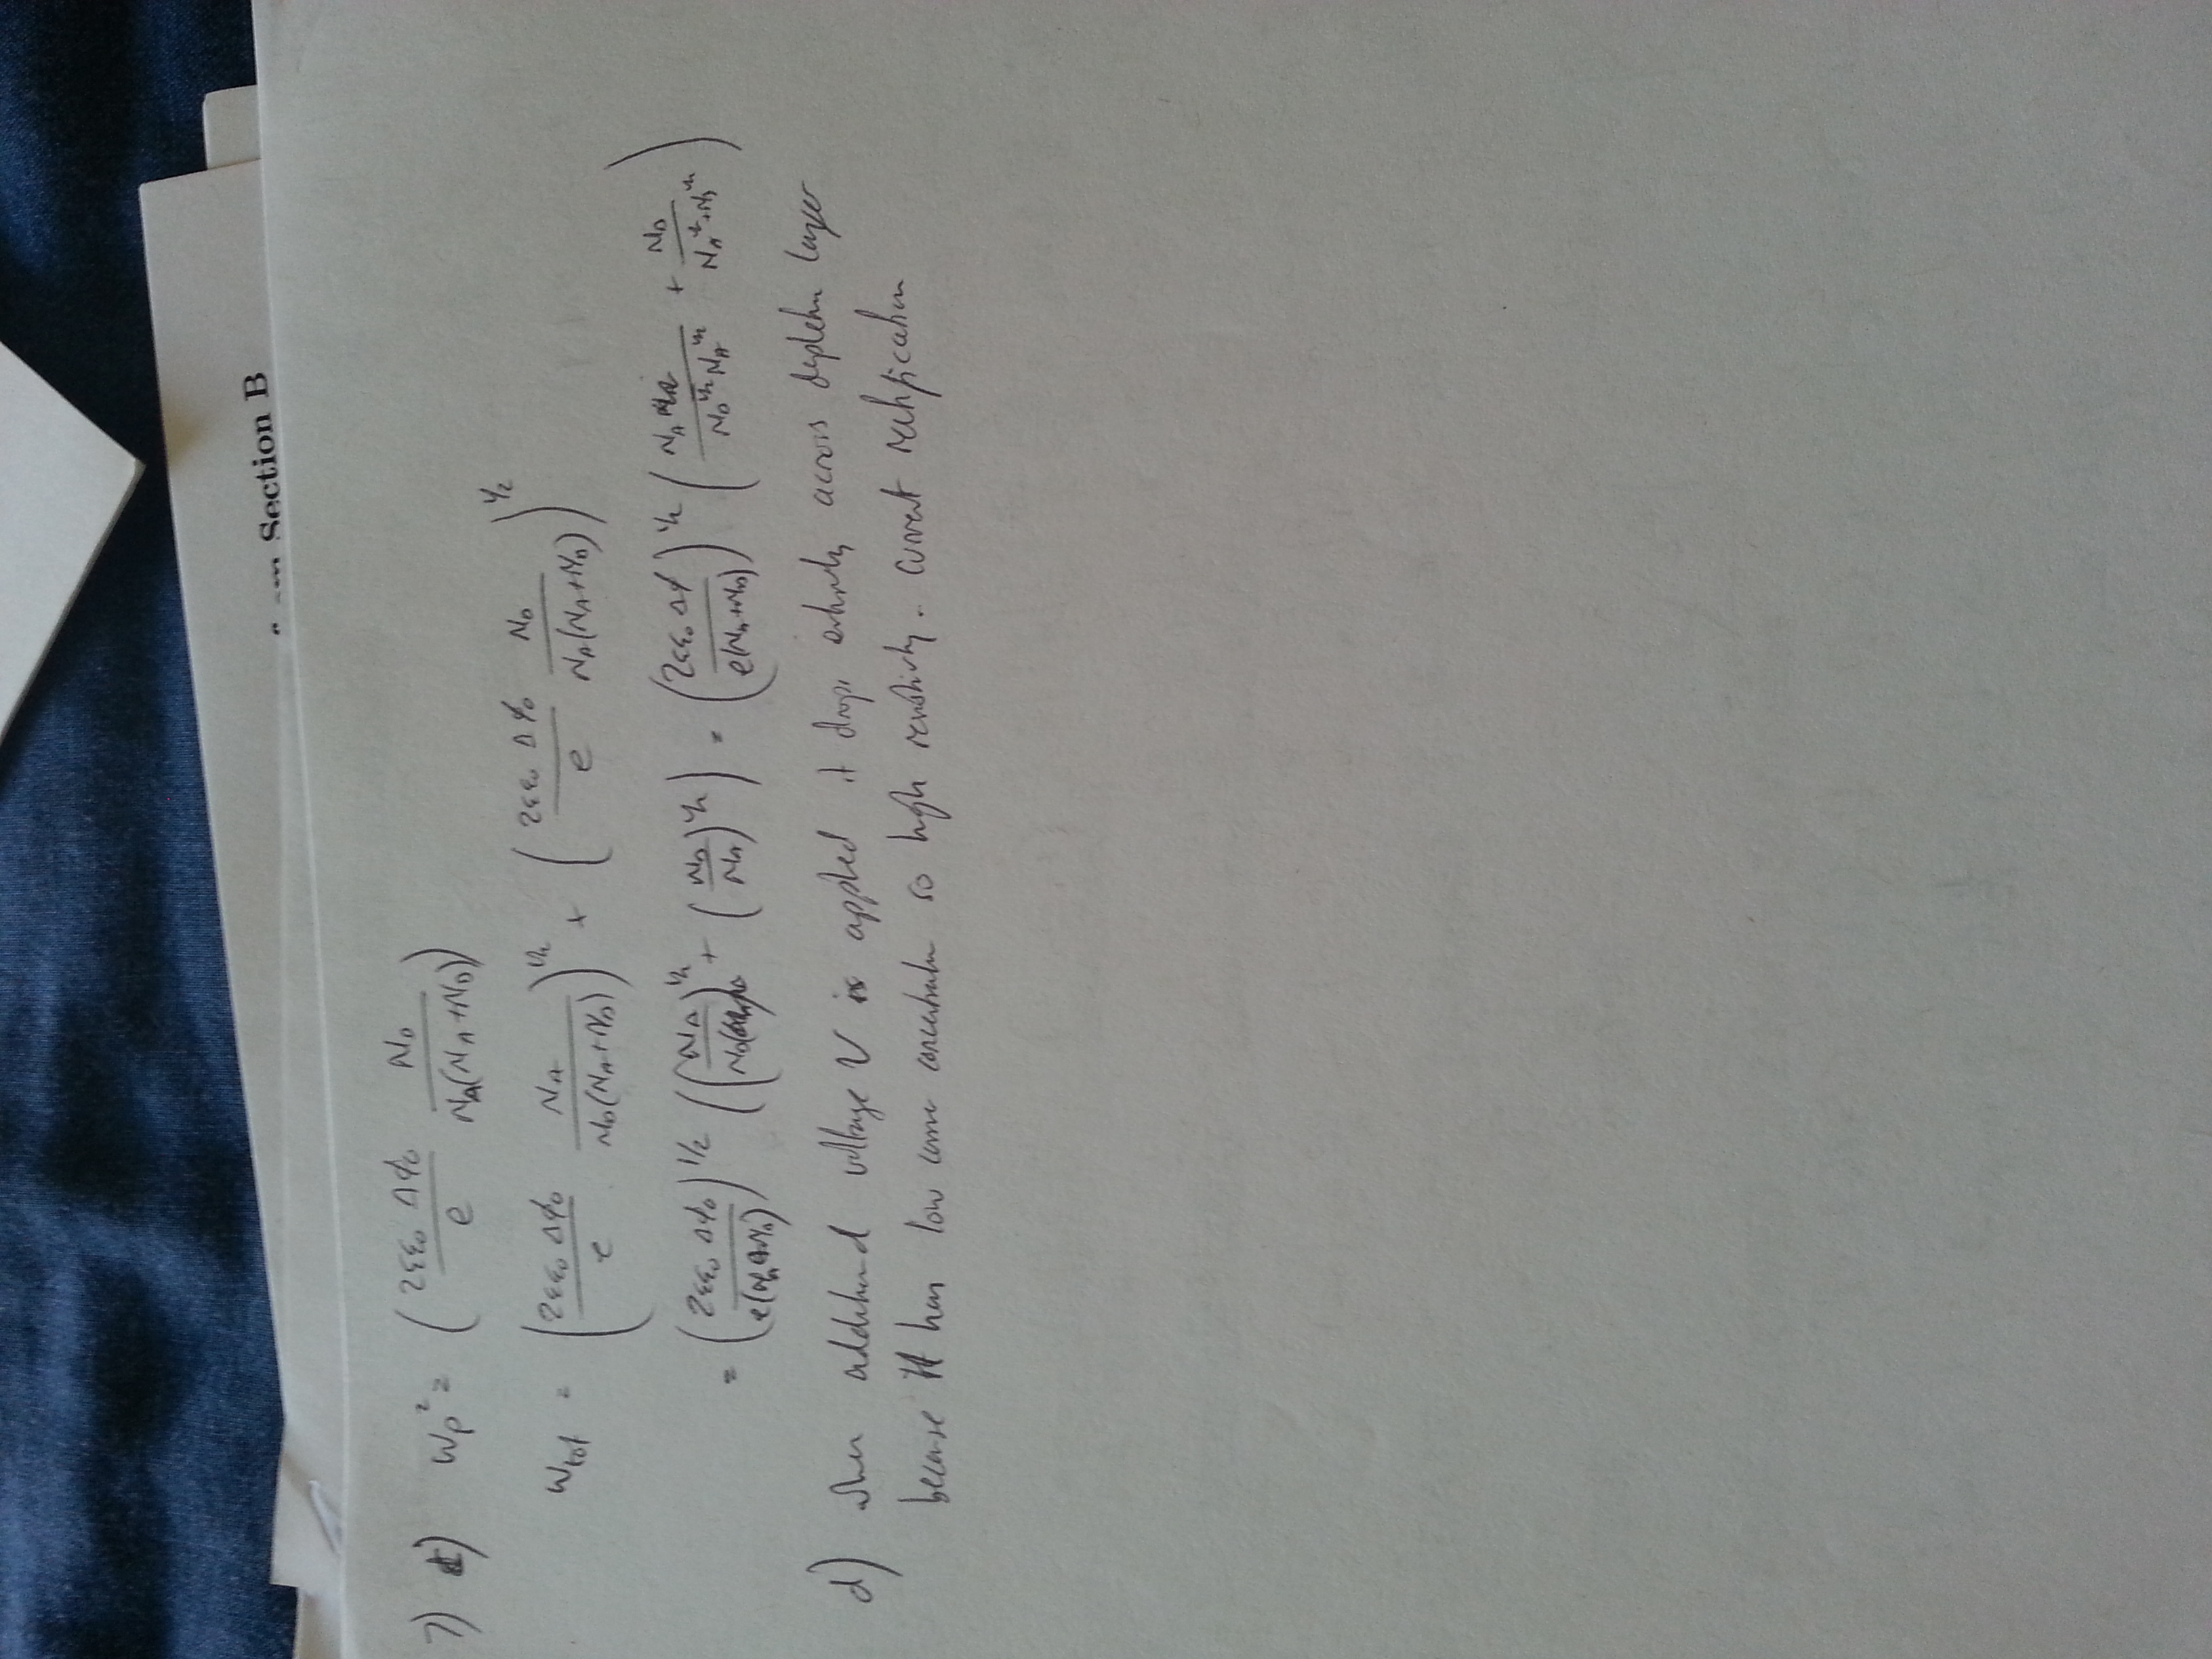 from Section B
7) c) Wp² = (2εε₀ Δϕ₀ / e · N_D / N_A(N_A+N_D))
W_tot = (2εε₀ Δϕ₀ / e · N_A / N_D(N_A+N_D))^1/2 + (2εε₀ Δϕ₀ / e · N_D / N_A(N_A+N_D))^1/2
= (2εε₀ Δϕ₀ / e(N_A+N_D))^1/2 ((N_A / N_D)^1/2 + (N_D / N_A)^1/2) = (2εε₀ Δϕ / e(N_A+N_D))^1/2 (N_A / N_D^1/2 N_A^1/2 + N_D / N_A^1/2+N_D^1/2)
d) when additional voltage V is applied it drops entirely across depletion layer
because it has low carrier concentration so high resistivity. Current rectification